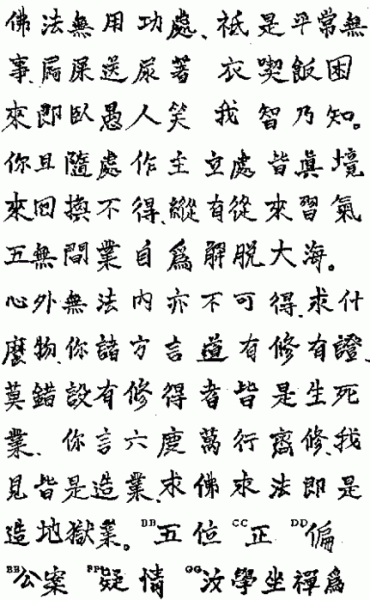 佛法無用功處、祇是平常無
事、屙屎送尿著 衣喫飯困
來即臥愚人笑 我 智乃知。
你且隨處作主立處皆真境
來回換不得、縱有從來習氣
五無間業自為解脫大海。
心外無法內亦不可得、求什
麼物、你諸方言道有修有證、
莫錯設有修得者皆是生死
業、你言六度萬行齊修、我
見皆是造業、求佛求法即是
造地獄業。BB五位 CC正 DD偏
EE公案 FF疑情 GG汝學坐禪為